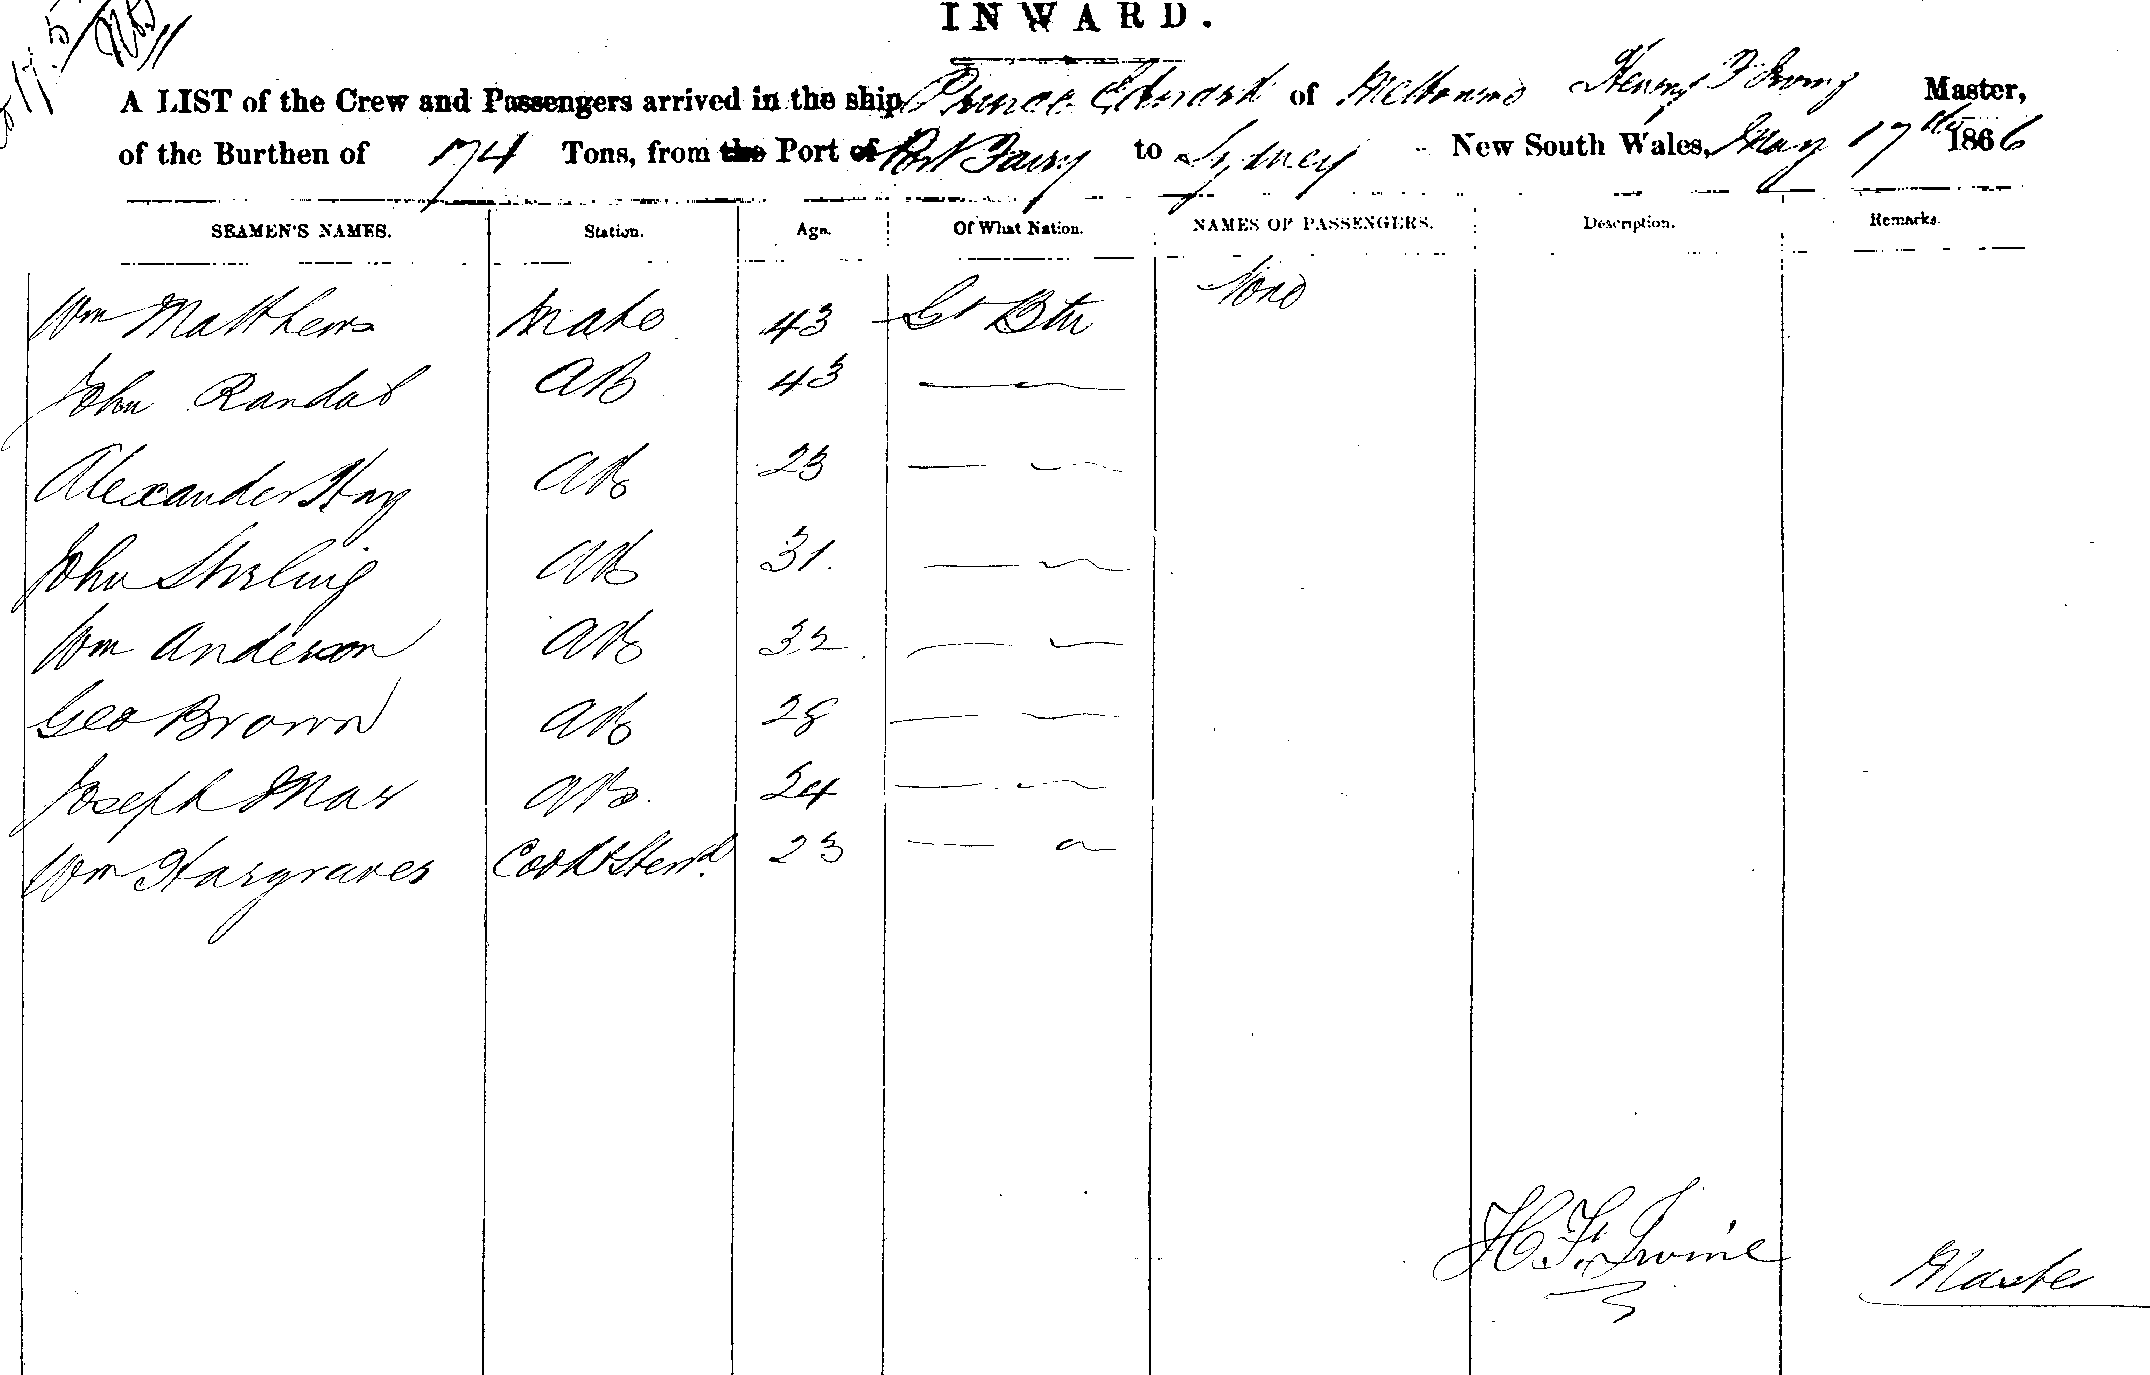 INWARD.
A LIST of the Crew and Passengers arrived in the ship Prince Edward of Melbourne Henry F Irving Master,
of the Burthen of 174 Tons, from the Port of Port Fairy to Sydney New South Wales, May 17th 1866
SEAMEN'S NAMES. Station. Age. Of What Nation. NAMES OF PASSENGERS. Description. Remarks.
Wm Matthews Mate 43 Gt Btn None
John Randal AB 43
Alexander Hay AB 23
John Stirling AB 31.
Wm Anderson AB 32
Geo Brown AB 28
Joseph Mar AB 24
Wm Hargraves Cook & Stewd. 23
H. F. Irvine Master